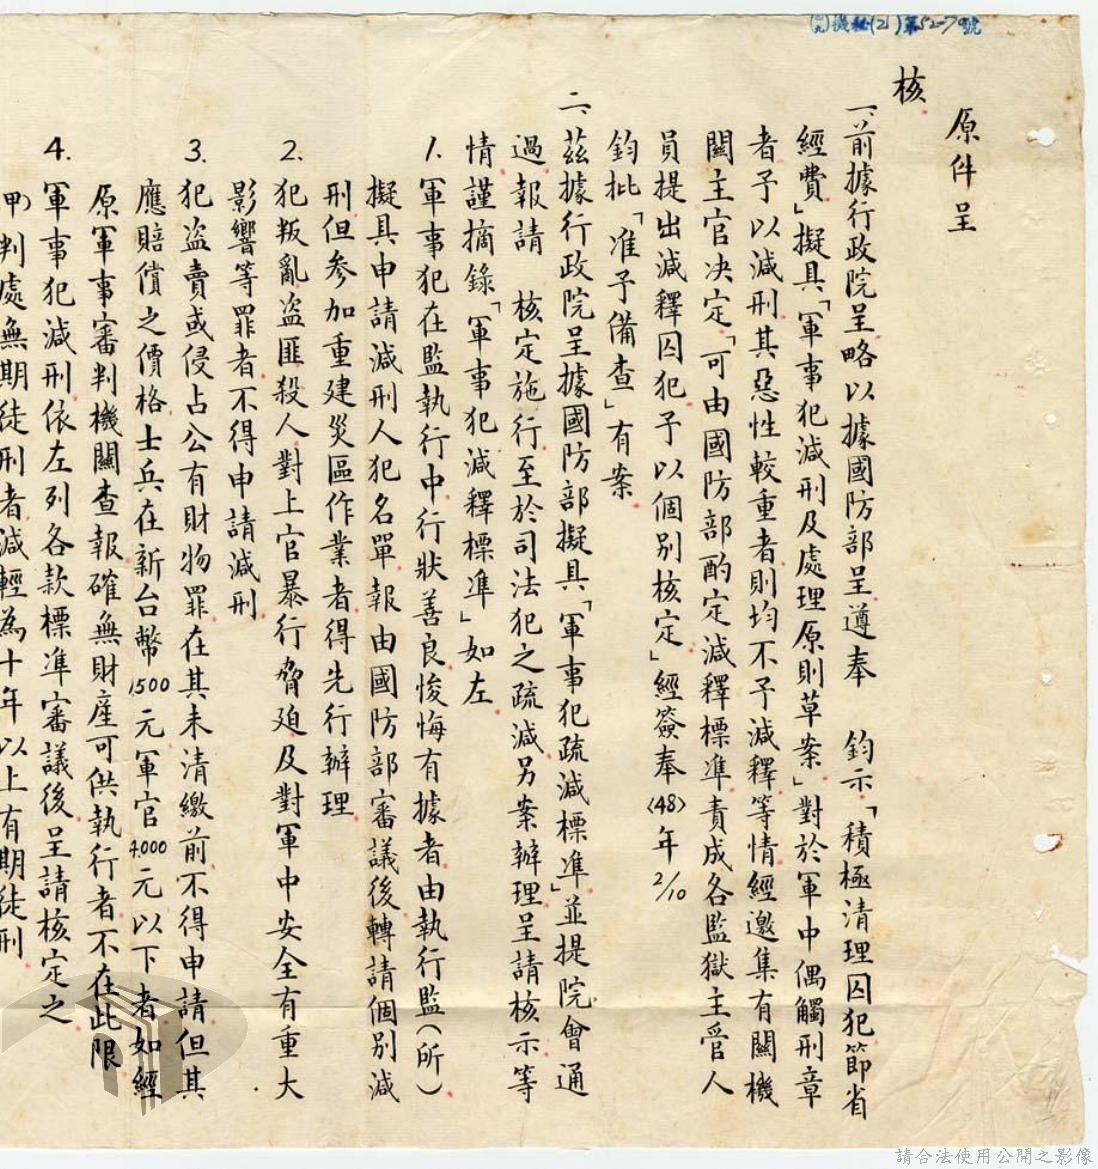 (四九)機秘(乙)第52-70號
原件呈
核
一、前據行政院呈略以據國防部呈遵奉 鈞示「積極清理囚犯節省
經費」擬具「軍事犯減刑及處理原則草案」對於軍中偶觸刑章
者予以減刑其惡性較重者則均不予減釋等情經邀集有關機
關主官決定「可由國防部酌定減釋標準責成各監獄主管人
員提出減釋囚犯予以個別核定」經簽奉(48)年2/10
鈞批「准予備查」有案
二、茲據行政院呈據國防部擬具「軍事犯疏減標準」並提院會通
過報請 核定施行至於司法犯之疏減另案辦理呈請核示等
情謹摘錄「軍事犯減釋標準」如左
1.軍事犯在監執行中行狀善良悛悔有據者由執行監(所)
擬具申請減刑人犯名單報由國防部審議後轉請個別減
刑但參加重建災區作業者得先行辦理
2.犯叛亂盜匪殺人對上官暴行脅迫及對軍中安全有重大
影響等罪者不得申請減刑
3.犯盜賣或侵占公有財物罪在其未清繳前不得申請但其
應賠償之價格士兵在新台幣1,500元軍官4,000元以下者如經
原軍事審判機關查報確無財產可供執行者不在此限
4.軍事犯減刑依左列各款標準審議後呈請核定之
甲)判處無期徒刑者減輕為十年以上有期徒刑
請合法使用公開之影像